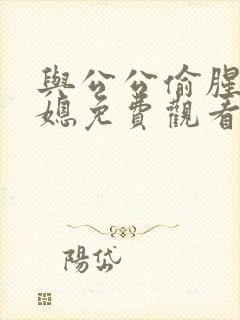 與公公偷腥
媳免費觀看
陽岱